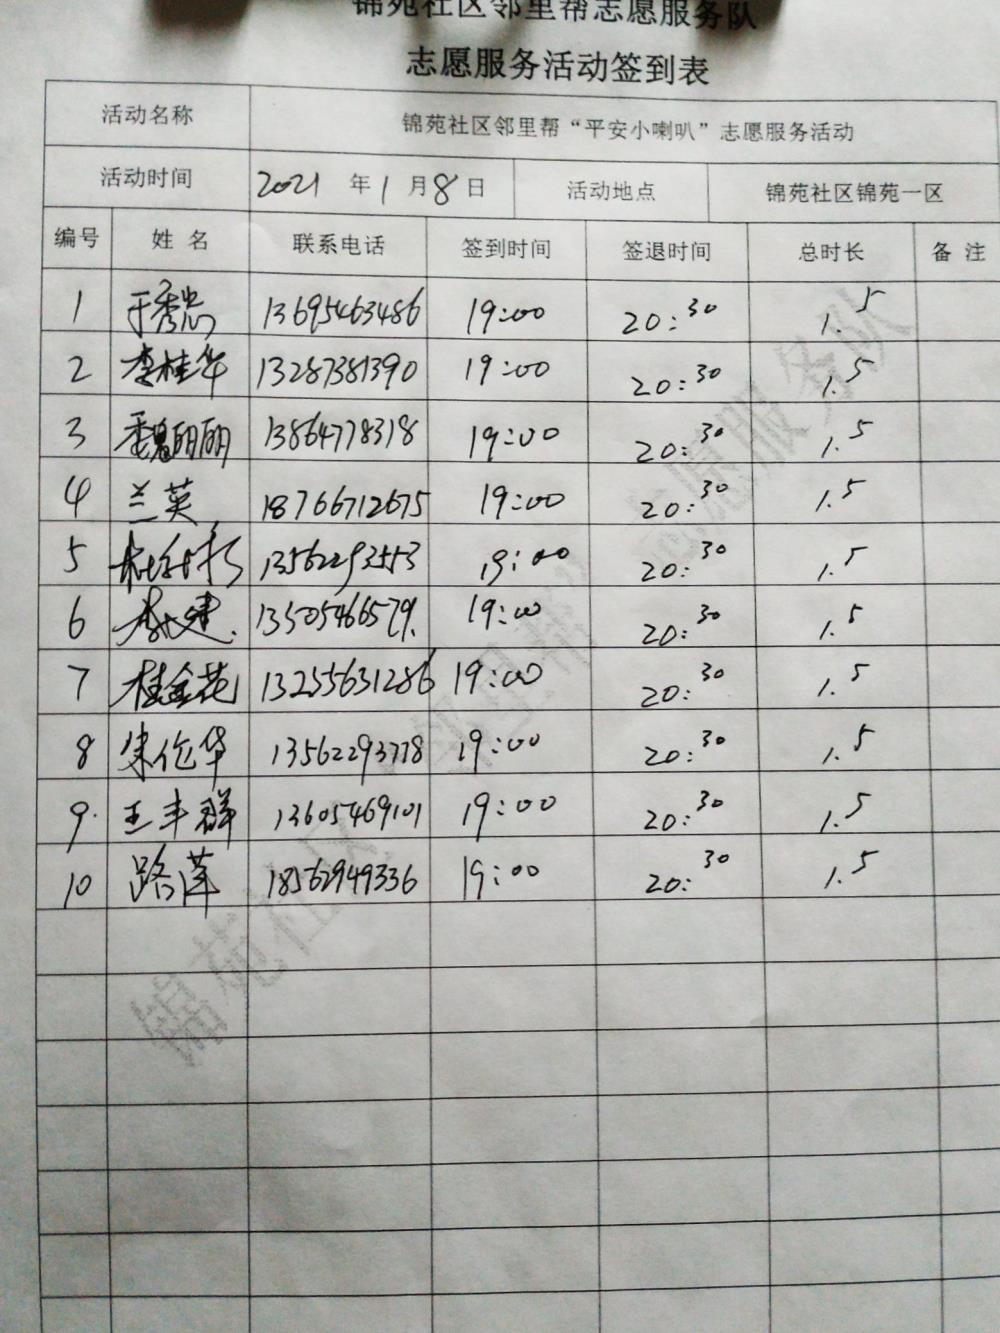 锦苑社区邻里帮志愿服务队
志愿服务活动签到表
活动名称 锦苑社区邻里帮“平安小喇叭”志愿服务活动
活动时间 2021 年 1 月 8 日 活动地点 锦苑社区锦苑一区
编号 姓名 联系电话 签到时间 签退时间 总时长 备注
1 于秀忠 13695463486 19:00 20:30 1.5
2 李桂华 13287381390 19:00 20:30 1.5
3 魏丽丽 13864778318 19:00 20:30 1.5
4 兰英 18766712675 19:00 20:30 1.5
5 13562293553 19:00 20:30 1.5
6 13505466579 19:00 20:30 1.5
7 桂金花 13255631286 19:00 20:30 1.5
8 宋伦华 13562293778 19:00 20:30 1.5
9 王丰群 13605469101 19:00 20:30 1.5
10 路莲 18562949336 19:00 20:30 1.5
锦苑社区“邻里帮”志愿服务队